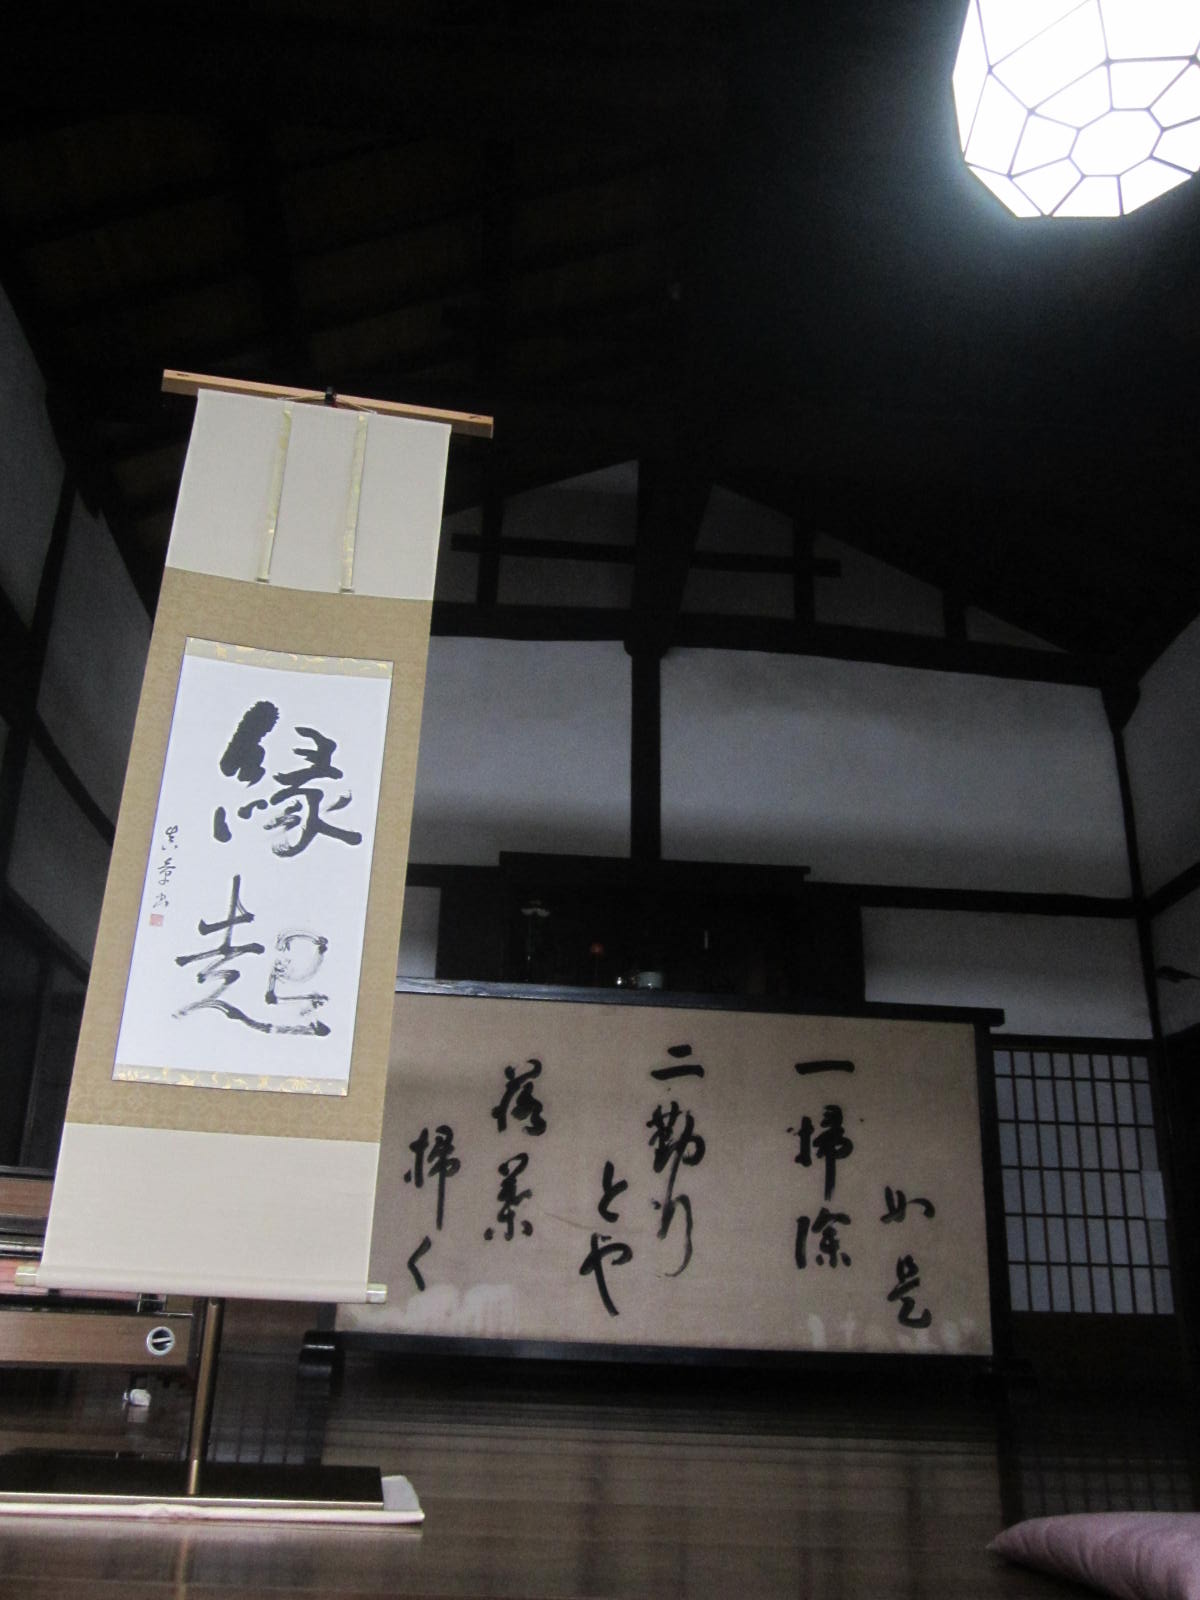 縁起
如是
一掃除
二勤行
とや
落葉
掃く